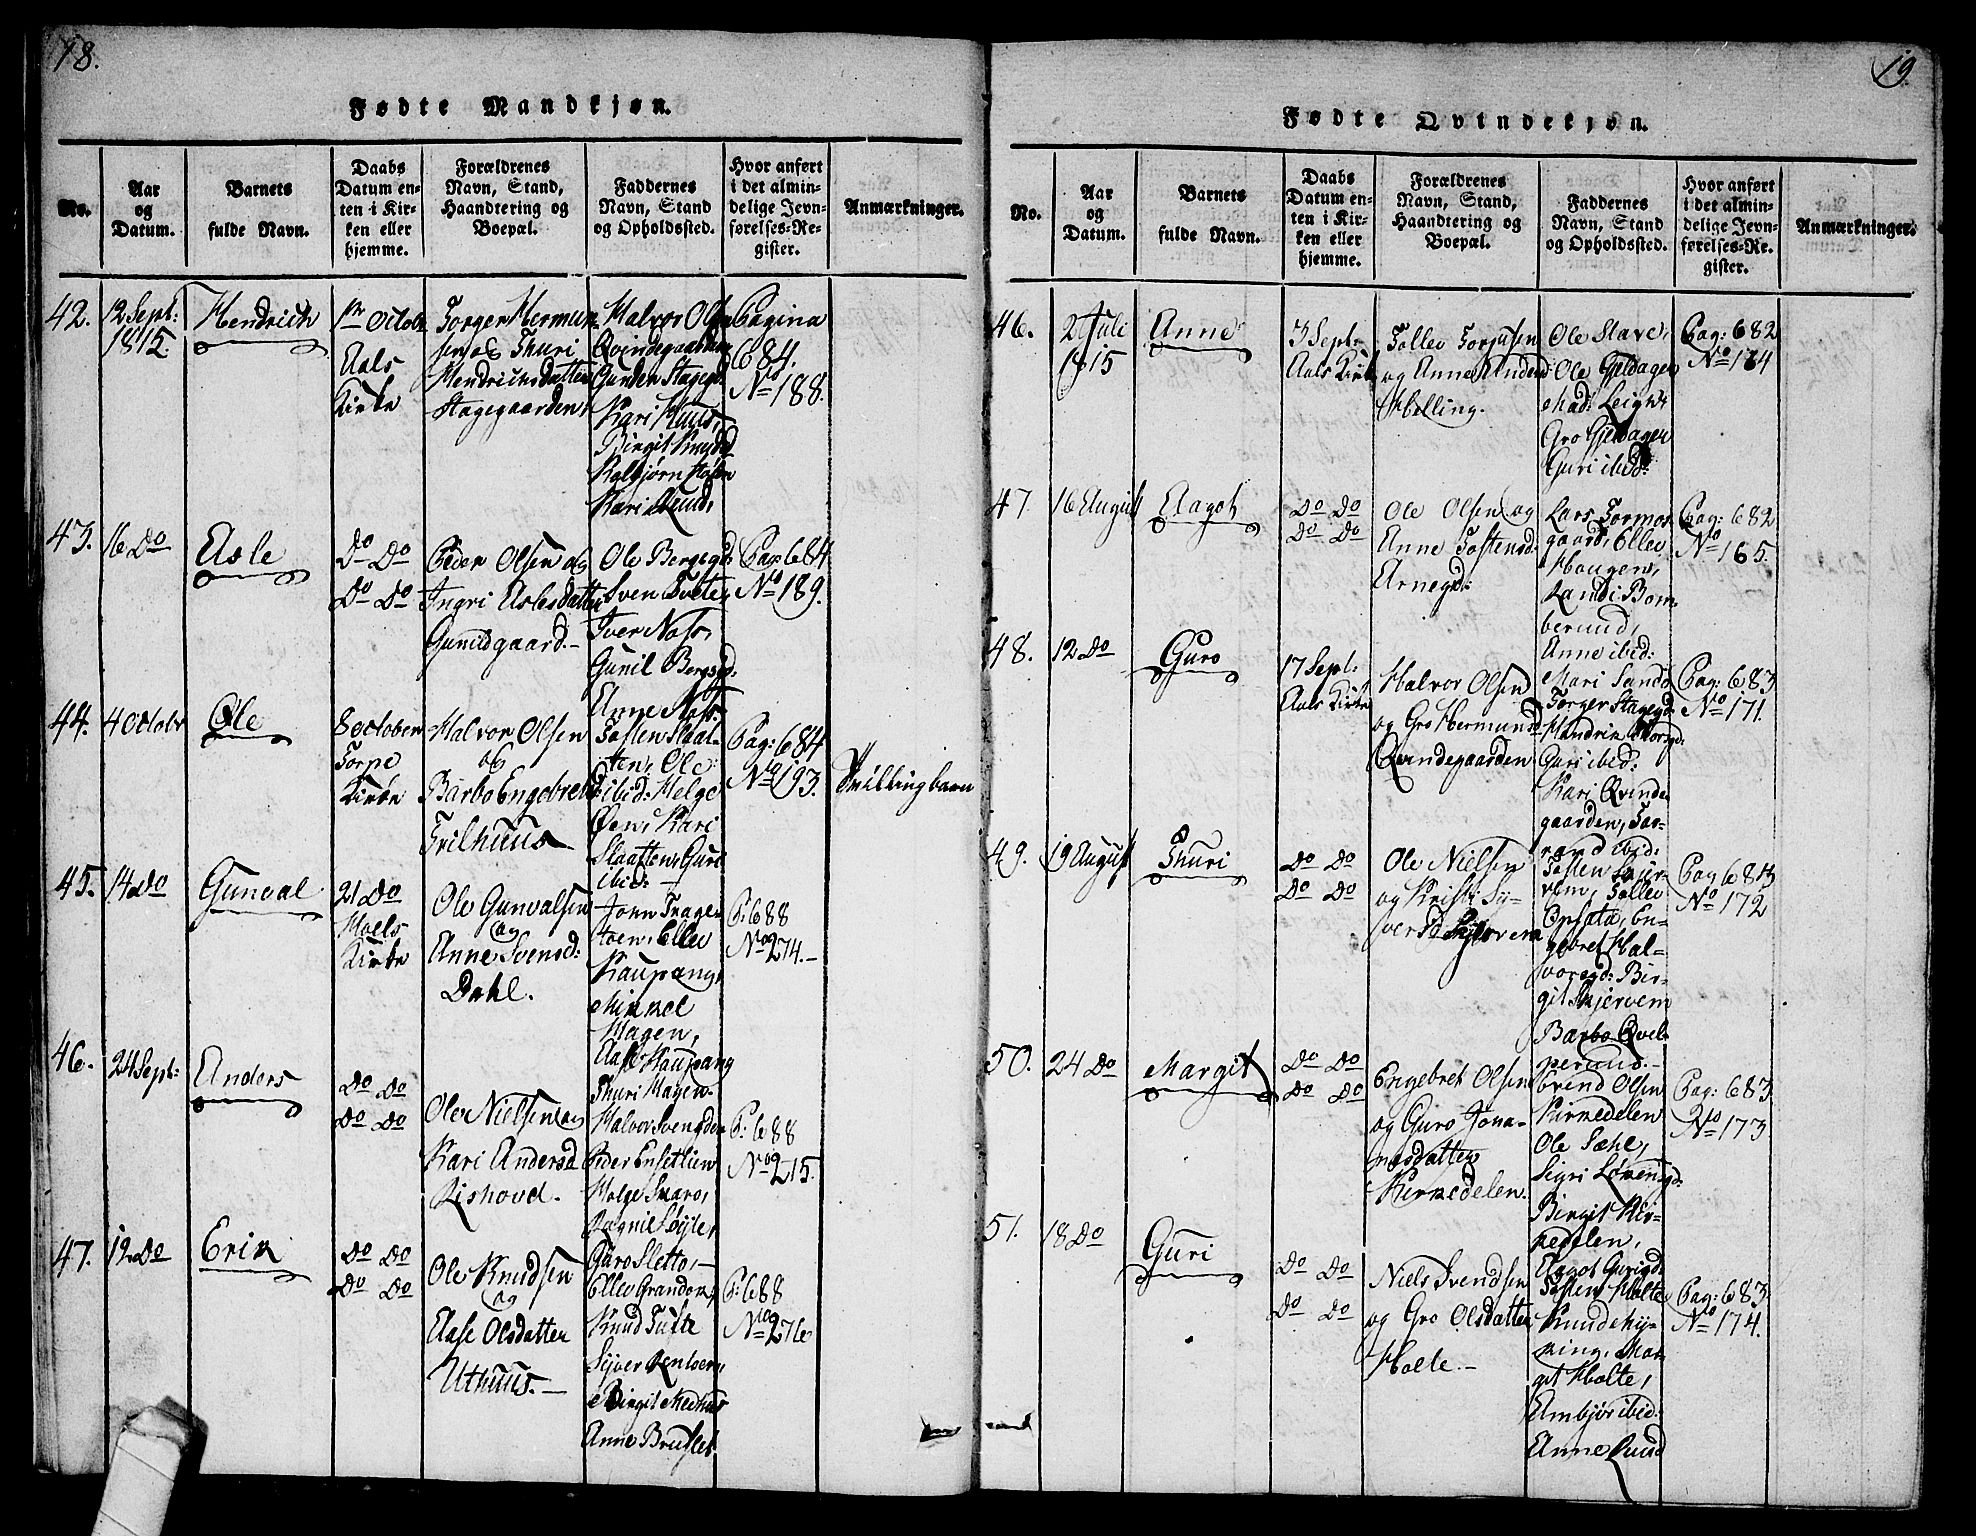 18.
Fødte Mandkjøn.
No.
Aar
og
Datum.
Barnets
fulde Navn.
Daabs
Datum en-
ten i Kir-
ken eller
hjemme.
Forældrenes
Navn, Stand,
Haandtering og
Boepæl.
Faddernes
Navn, Stand
og Opholdssted.
Hvor anført
i det almin-
delige Jevn-
førelses-Re-
gister.
Anmærkninger.
42.
12 Sept:
1815.
Hendrich
1n Octobr
Aals
Kirke
Torger Hermun-
sen og Thuri
Hendrichsdatter
Stagegaarden
Halvor Olsen
Qvindegaarden
Gunder Stagegd
Kari Huus,
Birgit Knudsd
Kolbjørn Hofen
Kari Ruud,
Pagina
684.
No 188.
43.
16 Do
Asle
Do Do
Do Do
Peder Olsen og
Ingri Aslesdatter
Gunildgaard.-
Ole Bergsgd:
Sven Tveten
Iver Noss,
Gunil Bergsgd:
Anne Noss.
Pag: 684
No 189.
44.
4 Octobr
Ole
8 October
Torpe
Kirke
Halvor Olsen
og
Barbo Engebretsd:
Trilhuus
Tosten Slaat-
ten, Ole
ibid: Helge
Øen, Kari
Slaatten, Guri
ibid:-
Pag: 684
No 193.
Tvillingbarn
45.
14 Do
Gunval
21 Do
Hoels
Kirke
Ole Gunvalsen
og
Anne Svensd:
Dahl.
John Trage-
toen, Ellev
Kaupang,
Mikkel
Hagen,
Aase Kaupang
Thuri Hagen.
P: 688
No 274.-
46.
24 Sept:
Anders
Do Do
Do Do
Ole Nielsen og
Kari Andersd
Rishovd.
Halvor Svengden
Peder Ensetlien
Helge Snaro,
Ragnil Søyle,
Guro Sletto,-
P: 688
No 215.
47.
12 Do
Erik
Do Do
Do Do
Ole Knudsen
og
Aase Olsdatter
Uthuus.-
Ellev Granden,
Knud Tufte
Syver
Birgit Medhus
Anne Bruslet.
P: 688
No 276
19.
Fødte Qvindekjøn.
No.
Aar
og
Datum.
Barnets
fulde Navn.
Daabs
Datum en-
ten i Kir-
ken eller
hjemme.
Forældrenes
Navn, Stand,
Haandtering og
Boepæl.
Faddernes
Navn, Stand
og Opholdssted.
Hvor anført
i det almin-
delige Jevn-
førelses-Re-
gister.
Anmærkninger.
46.
2 Juli
1815
Anne
3 Sept:
Aals Kirke
Tollev Torjusen
og Anne Andersd:
Helling.
Ole Stave,
Ole Gjeldagen
Mad: Leigh,
Gro Gjeldagen
Guri ibid:
Pag: 682
No 164
47.
16 August
Aagot
Do Do
Do Do
Ole Olsen og
Anne Tostensd:
Arnegd:
Lars Tormos
gaard, Ellev
Haugen,
Randi Bom-
berud,
Anne ibid:
Pag: 682
No 165.
48.
12 Do
Guro
17 Sept:
Aals Kirke
Halvor Olsen
og Gro Hermunsd
Qvindegaarden
Mari Sundo
Torger Stagegd:
Hendrik Thorsgd:
Guri ibid:
Kari Qvinde
gaarden, Tar-
rand ibid:
Pag: 683
No 171.
49.
19 August
Thuri
Do Do
Do Do
Ole Nielsen
og Kristi Sy-
versd Skjervem
Tosten Skjer-
vem, Tollev
Opsata, En-
gebret Hal-
vorsgd: Bir-
git Skjervem
Barbo Qvel-
perud.-
Pag 683
No 172
50.
24 Do
Margit
Do Do
Do Do
Engebret Olsen
og Guro Jona-
næsdatter
Kirkedelen.
Erend Olsen
Kirkedelen
Ole Sæhl,
Sigri Løvensgd:
Birgit Kir-
kedelen,
Aagot Gurigd:
Pag: 683.
No 173.
51.
18 Do
Guri
Do Do
Do Do
Niels Svendsen
og Gro Olsdatter
Holte.-
Tosten Holte
Knud Hy-
ning, Mar
git Holte,
Ambjør ibid:
Anne Ruud
Pag: 683.
No 174.